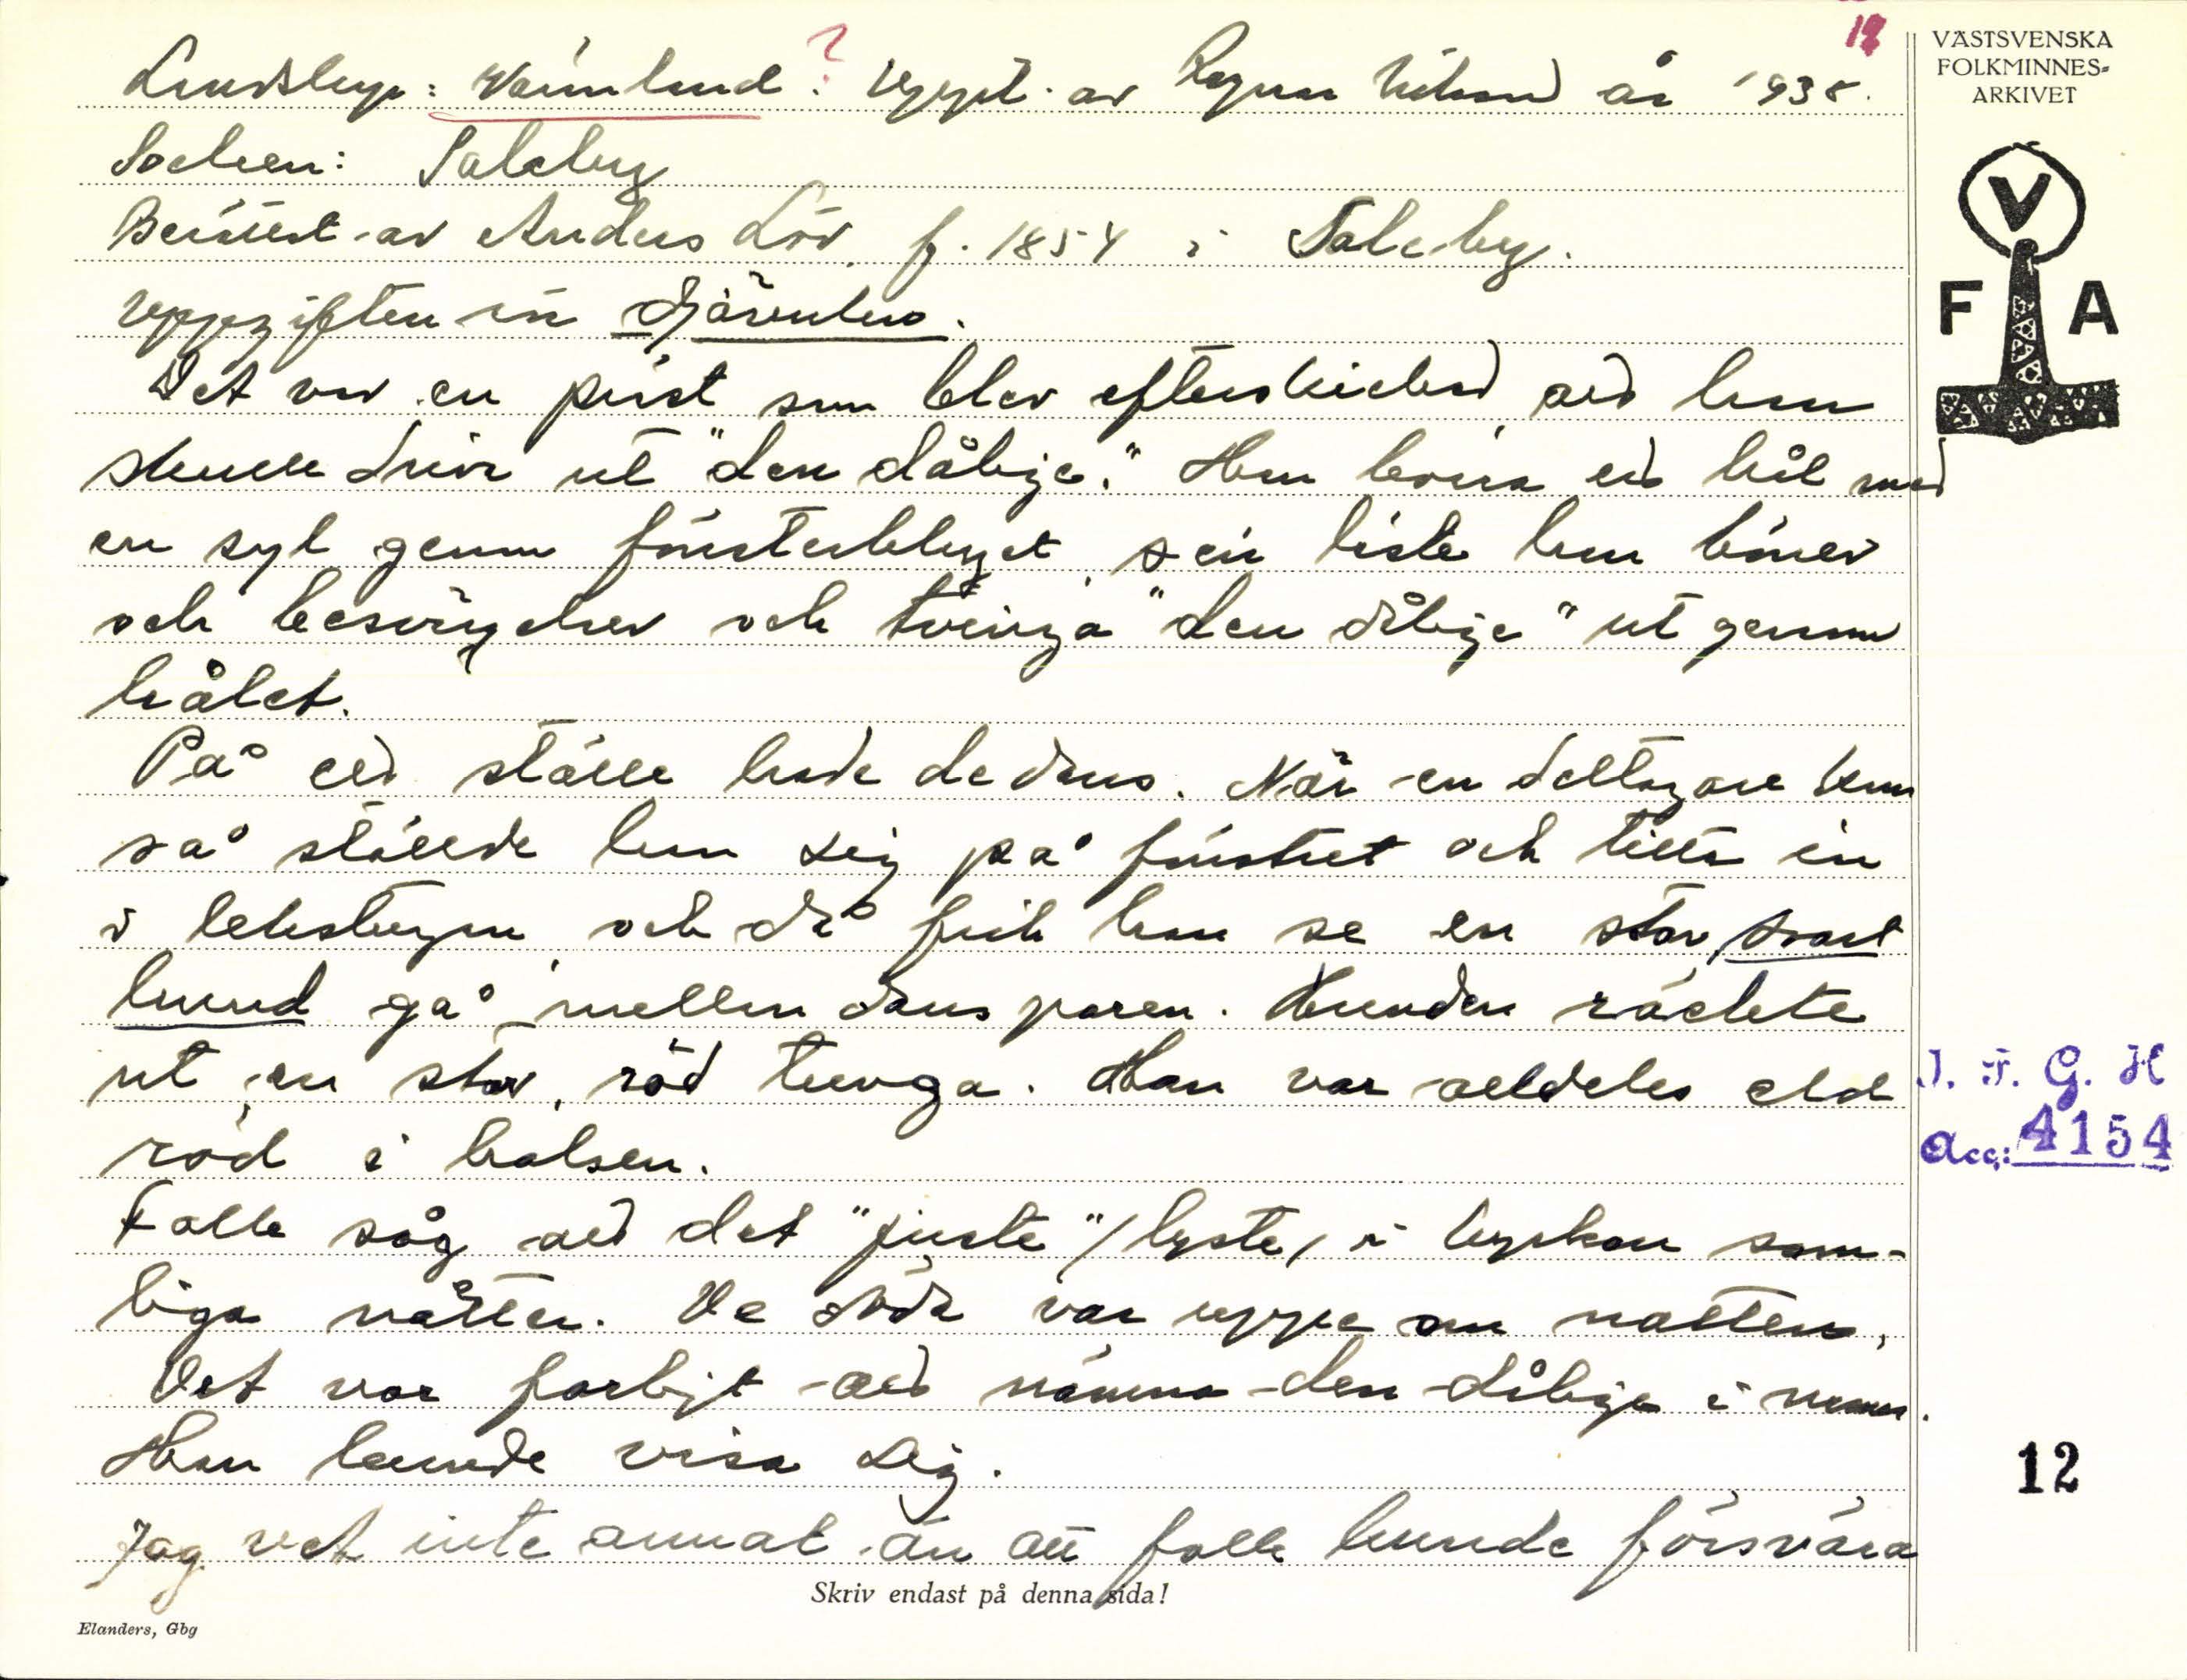 18
VÄSTSVENSKA
FOLKMINNES-
ARKIVET
V
F A
Landskap: Värmland? Uppt. av Ragnar Nilsson år 1938.
Socken: Saleby
Berättat av Anders Löv, f. 1854 i Saleby.
Uppgiften är Djävulen.
Det var en präst som blev efterskickad, att han
skulle driva ut "den dålige." Han borra ett hål med
en syl genom fönsterblyet, sen läste han böner
och besvärjelser och tvinga "den dålige" ut genom
hålet.
På ett ställe hade de dans. När en deltagare kom
så ställde han sig på fönstret och titta in
i lekstugan, och då fick han se en stor, svart
hund gå mellan dansparen. Hunden räckte
ut en stor, röd tunga. Han var alldeles eld
röd i halsen.
Folk såg att det "juste" /lyste/ i kyrkan som-
liga nätter. De döda var uppe om natten.
Det var farligt att nämna den dålige i namn.
Han kunde visa sig.
Jag vet inte annat än att folk kunde försvära
J. F. G. H
Acc: 4154
12
Skriv endast på denna sida!
Elanders, Gbg